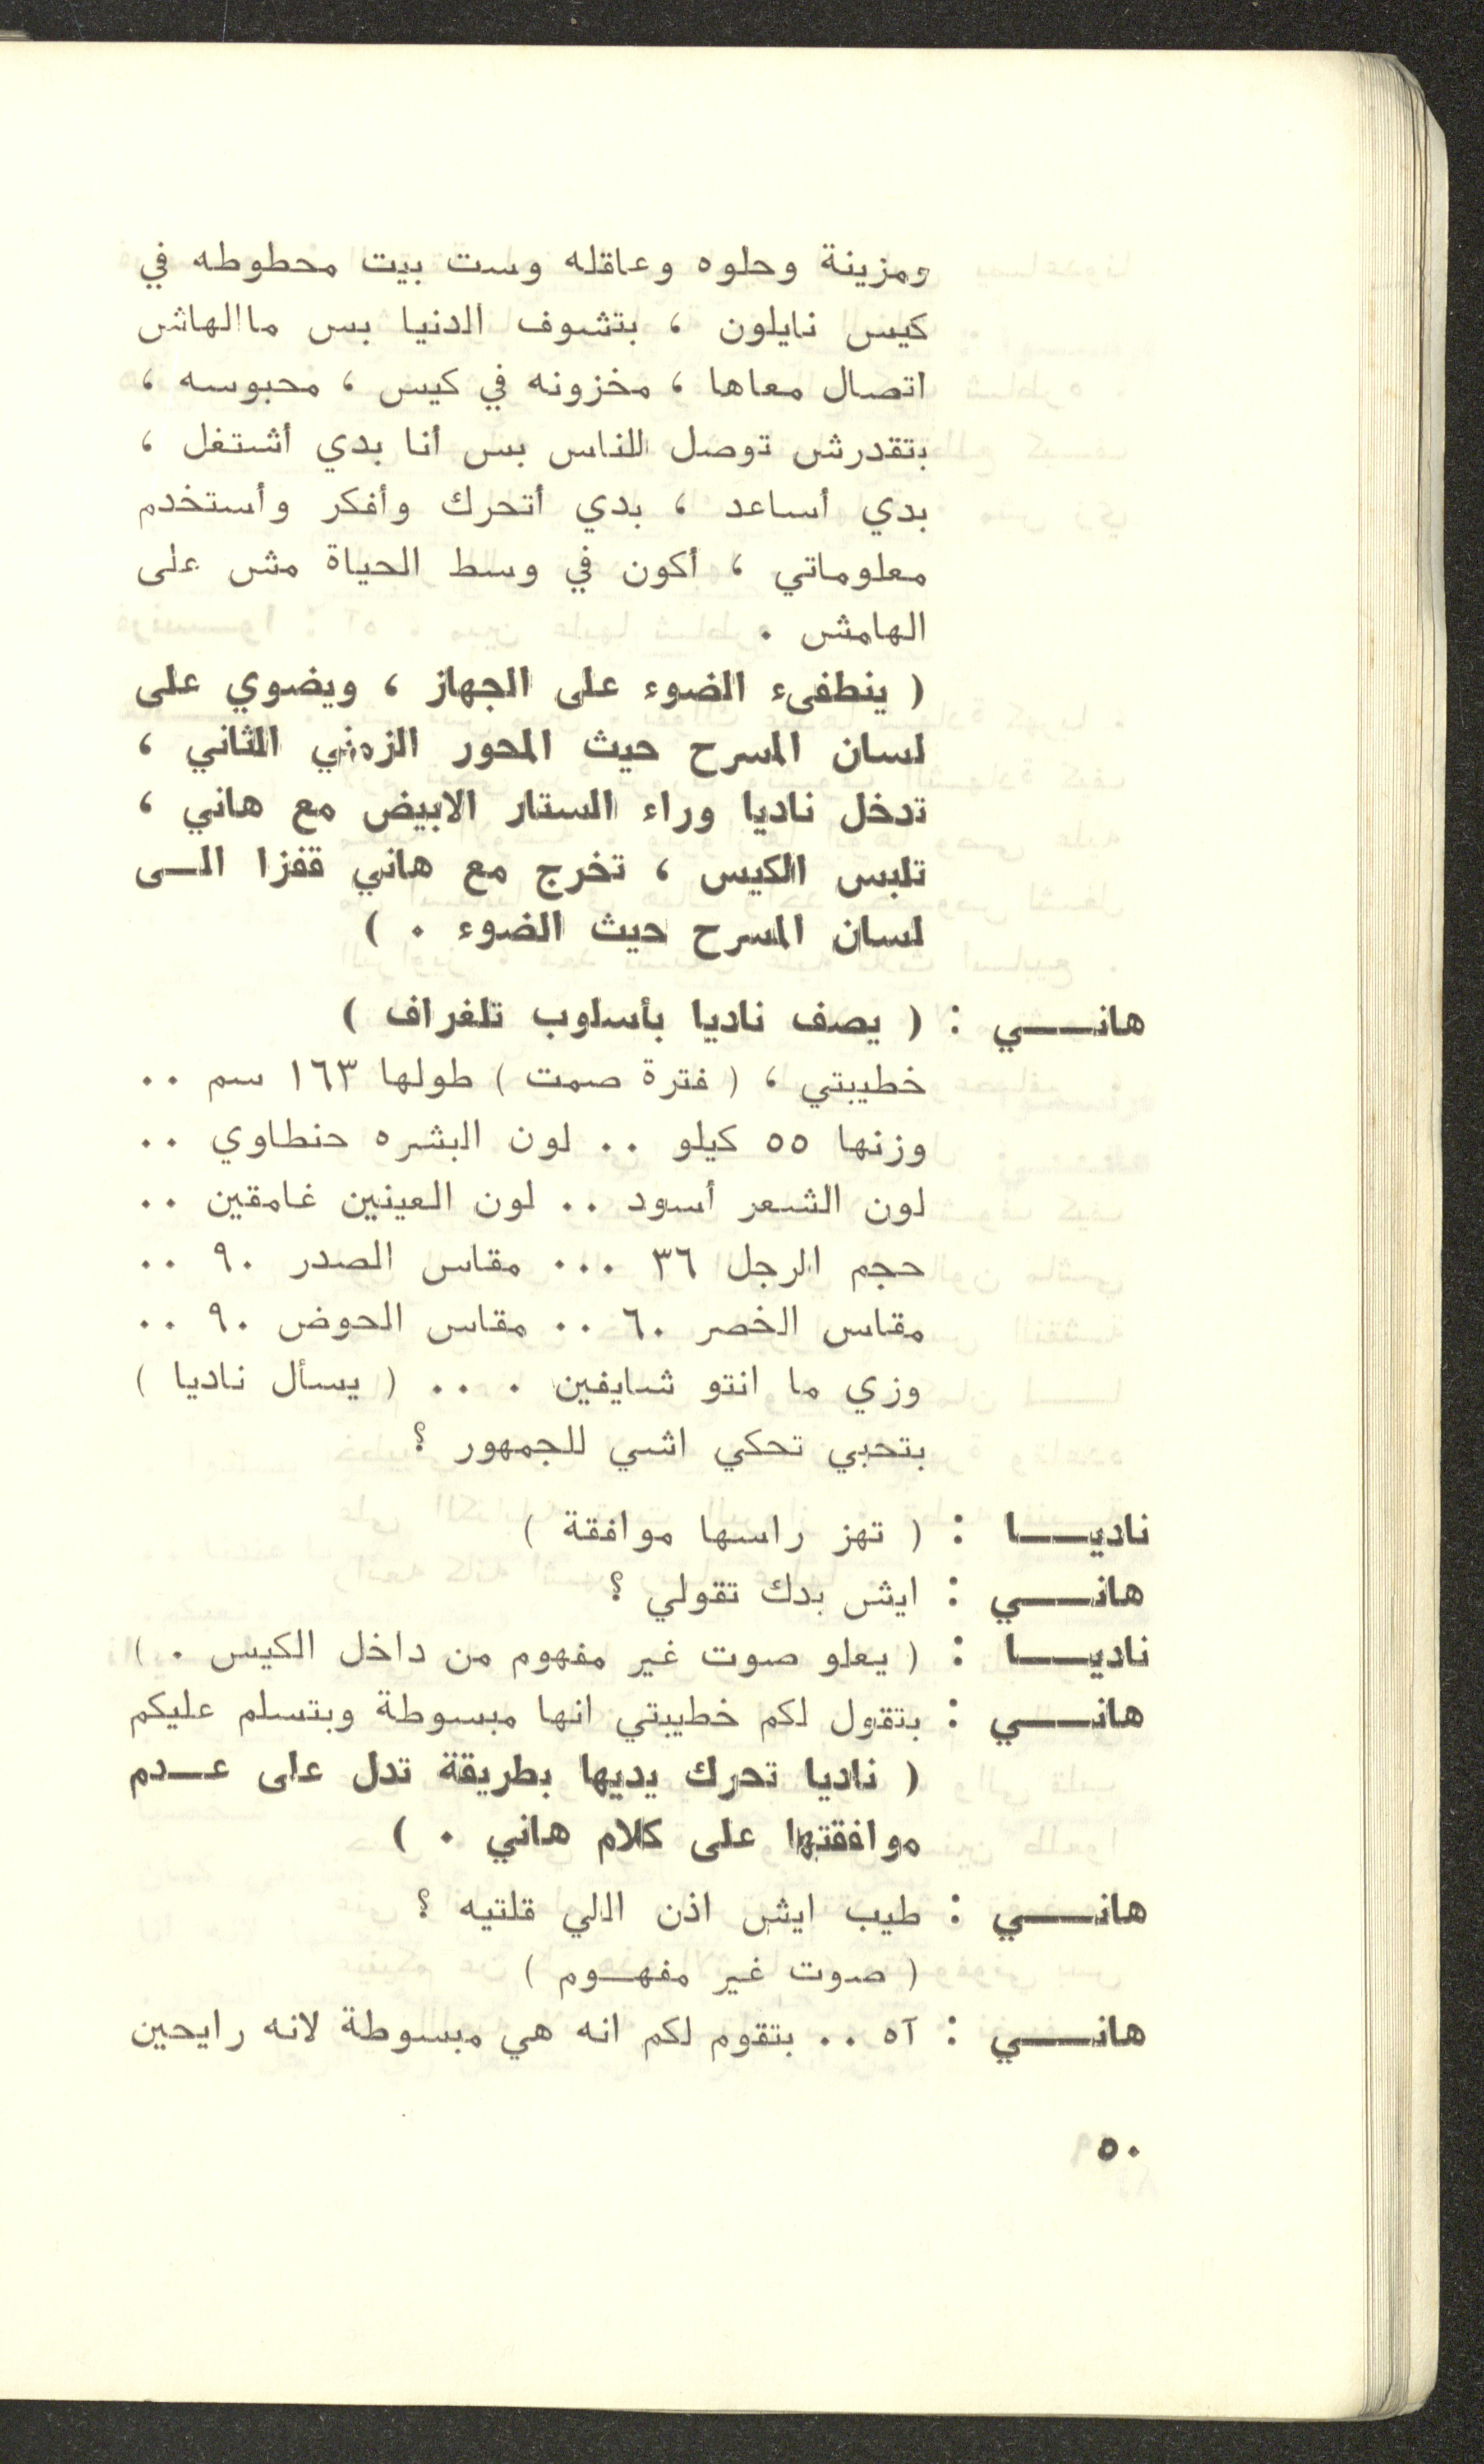 ومزينة وحلوه وعاقله وست بيت محطوطه في
كيس نايلون ، بتشوف الدنيا بس ماالهاش
اتصال معاها ، مخزونه في كيس ، محبوسه ،
بتقدرش توصل للناس بس أنا بدي أشتغل ،
بدي أساعد ، بدي أتحرك وأفكر وأستخدم
معلوماتي ، أكون في وسط الحياة مش على
الهامش .
( ينطفىء الضوء على الجهاز ، ويضوي على
لسان المسرح حيث المحور الزمني الثاني ،
تدخل ناديا وراء الستار الابيض مع هاني ،
تلبس الكيس ، تخرج مع هاني قفزا الـى
لسان المسرح حيث الضوء . )
هانـــي : ( يصف ناديا بأسلوب تلغراف )
خطيبتي ، ( فترة صمت ) طولها ١٦٣ سم ..
وزنها ٥٥ كيلو .. لون البشره حنطاوي ..
لون الشعر أسود .. لون العينين غامقين ..
حجم الرجل ٣٦ ... مقاس الصدر ٩٠ ..
مقاس الخصر ٦٠ .. مقاس الحوض ٩٠ ..
وزي ما انتو شايفين . .. ( يسأل ناديا )
بتحبي تحكي اشي للجمهور ؟
ناديـــا : ( تهز راسها موافقة )
هانـــي : ايش بدك تقولي ؟
ناديـــا : ( يعلو صوت غير مفهوم من داخل الكيس . )
هانـــي : بتقول لكم خطيبتي انها مبسوطة وبتسلم عليكم
( ناديا تحرك يديها بطريقة تدل على عـدم
موافقتها على كلام هاني . )
هانـــي : طيب ايش اذن اللي قلتيه ؟
( صوت غير مفهـوم )
هانـــي : آه .. بتقوم لكم انه هي مبسوطة لانه رايحين
٥٠